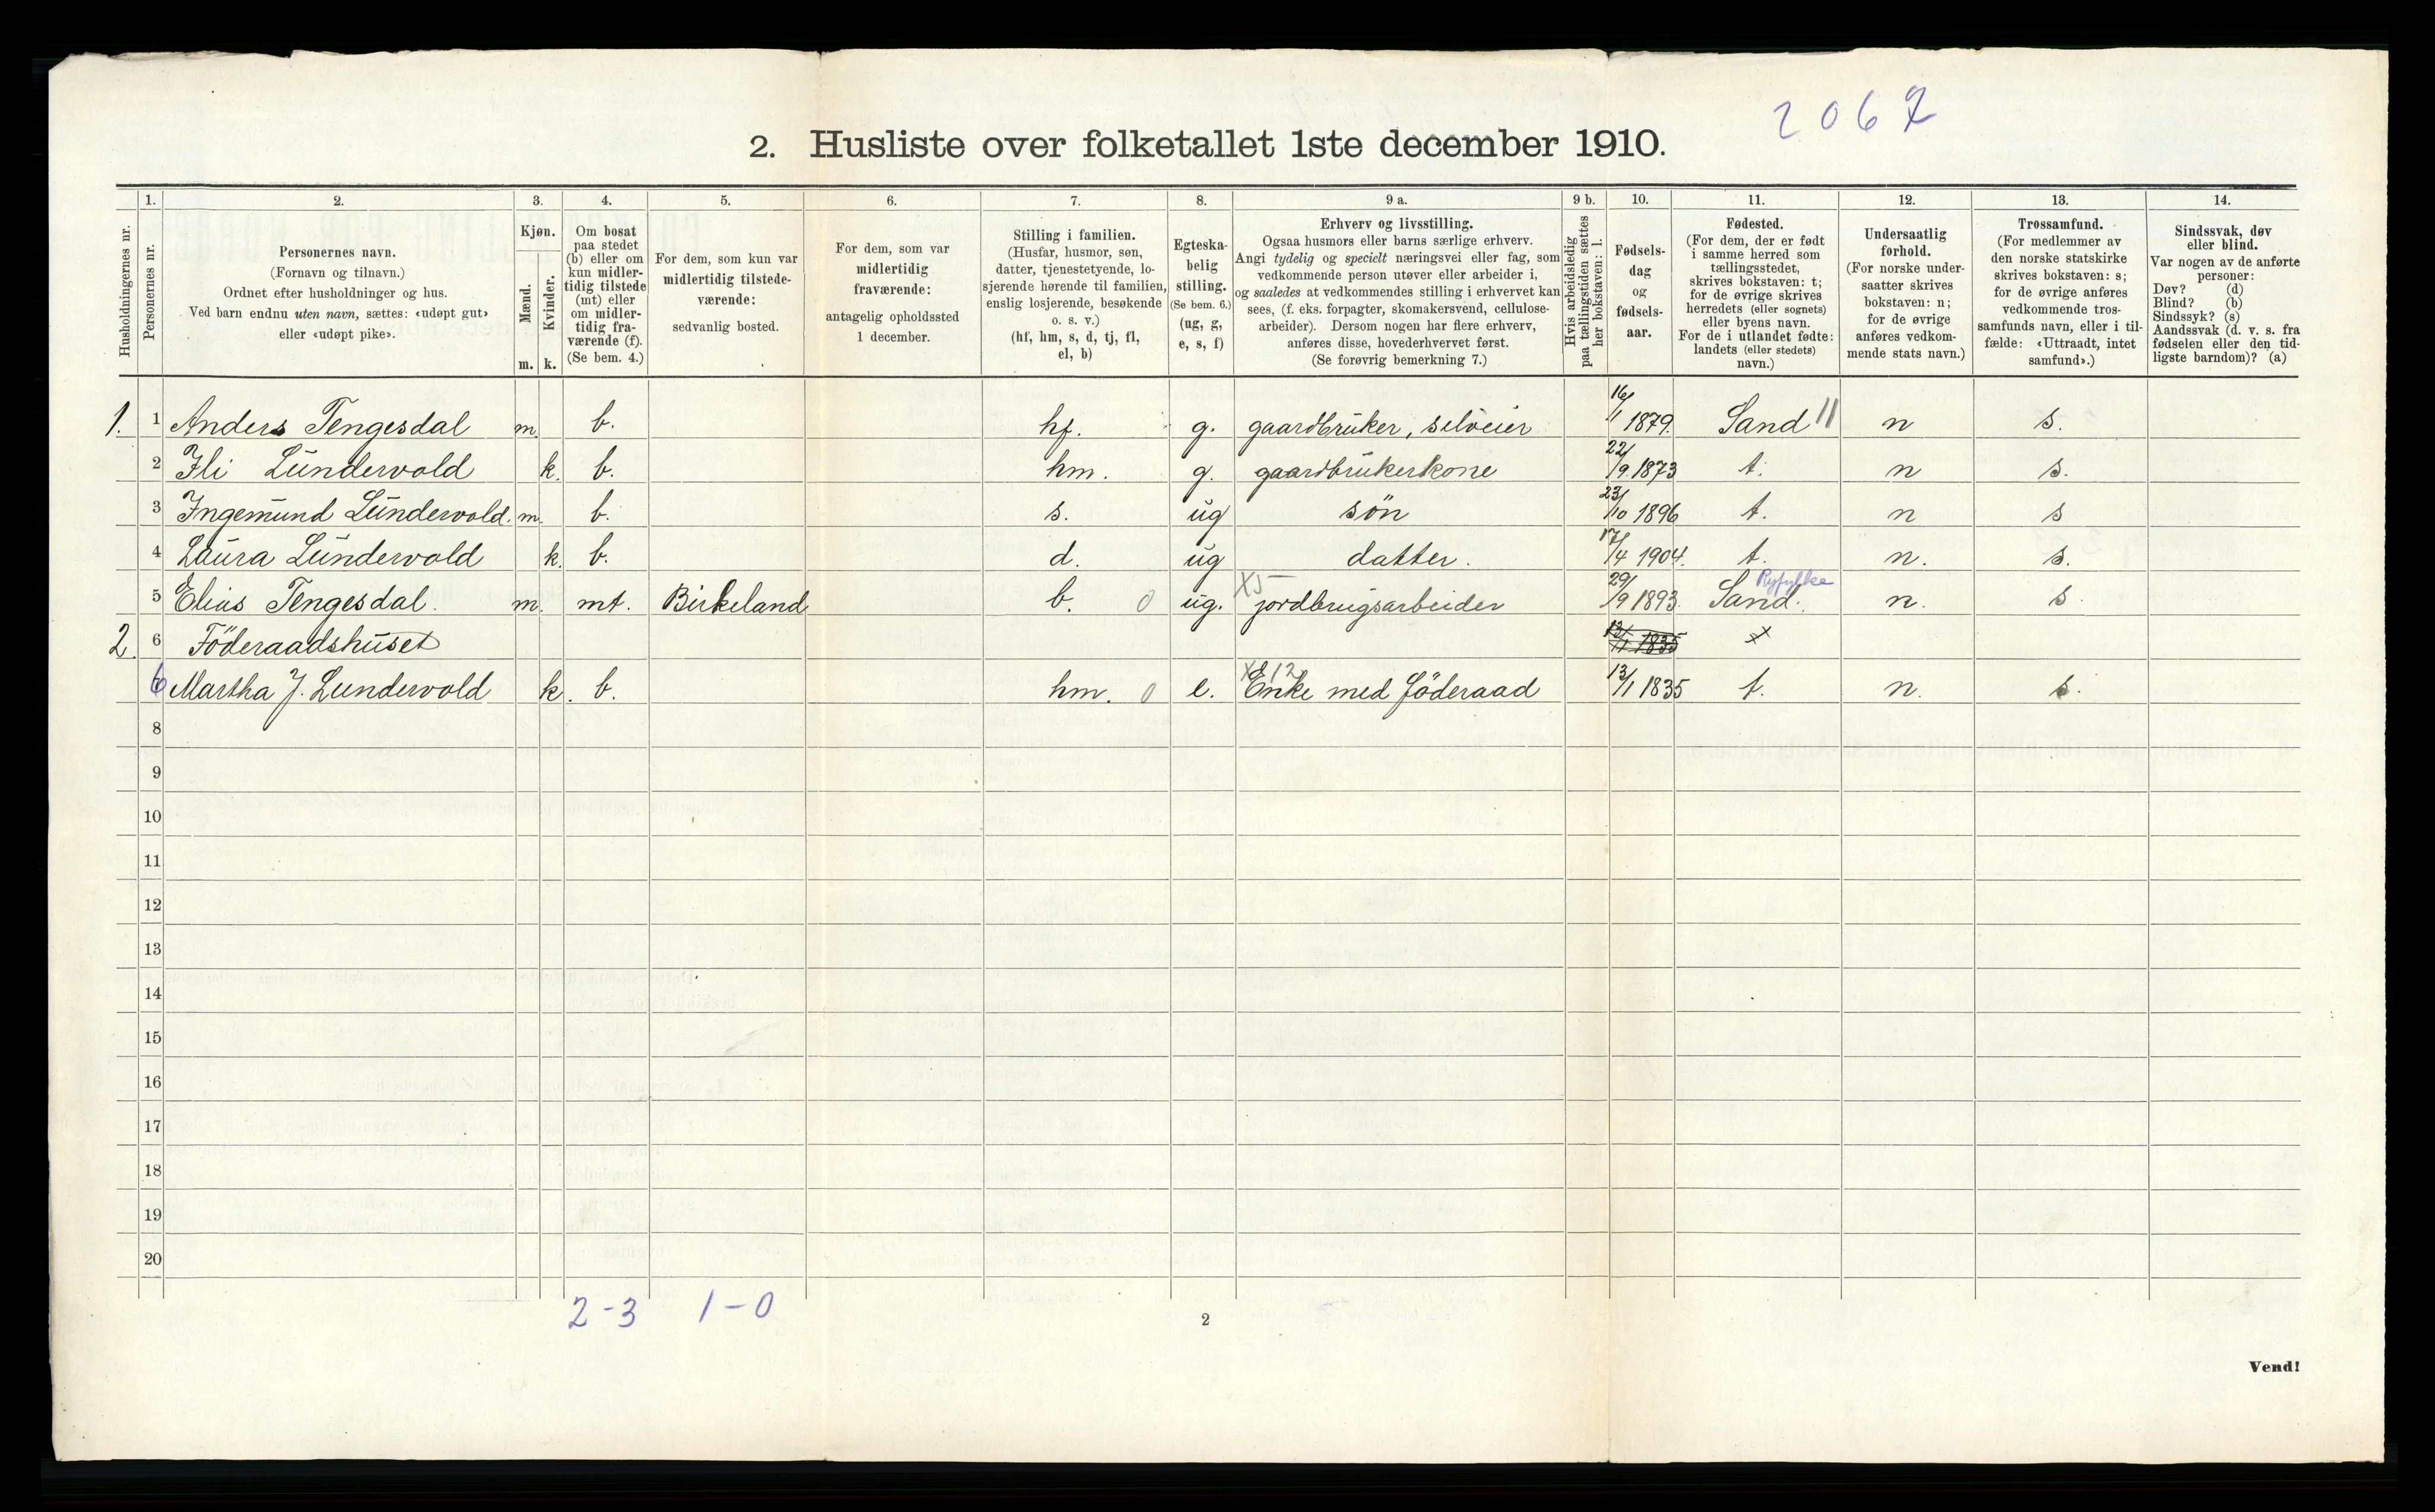 2067
2. Husliste over folketallet 1ste december 1910.
1. 2. 3. 4. 5. 6. 7. 8. 9 a. 9 b. 10. 11. 12. 13. 14.
Husholdningernes nr.
Personernes nr.
Personernes navn.
(Fornavn og tilnavn.)
Ordnet efter husholdninger og hus.
Ved barn endnu uten navn, sættes: «udøpt gut»
eller «udøpt pike».
Kjøn.
Mænd.
Kvinder.
m. k.
Om bosat
paa stedet
(b) eller om
kun midler-
tidig tilstede
(mt) eller
om midler-
tidig fra-
værende (f).
(Se bem. 4.)
For dem, som kun var
midlertidig tilstede-
værende:
sedvanlig bosted.
For dem, som var
midlertidig
fraværende:
antagelig opholdssted
1 december.
Stilling i familien.
(Husfar, husmor, søn,
datter, tjenestetyende, lo-
sjerende hørende til familien,
enslig losjerende, besøkende
o. s. v.)
(hf, hm, s, d, tj, fl,
el, b)
Egteska-
belig
stilling.
(Se bem. 6.)
(ug, g,
e, s, f)
Erhverv og livsstilling.
Ogsaa husmors eller barns særlige erhverv.
Angi tydelig og specielt næringsvei eller fag, som
vedkommende person utøver eller arbeider i,
og saaledes at vedkommendes stilling i erhvervet kan
sees, (f. eks. forpagter, skomakersvend, cellulose-
arbeider). Dersom nogen har flere erhverv,
anføres disse, hovederhvervet først.
(Se forøvrig bemerkning 7.)
Hvis arbeidsledig
paa tællingstiden sættes
her bokstaven: l.
Fødsels-
dag
og
fødsels-
aar.
Fødested.
(For dem, der er født
i samme herred som
tællingsstedet,
skrives bokstaven: t;
for de øvrige skrives
herredets (eller sognets)
eller byens navn.
For de i utlandet fødte:
landets (eller stedets)
navn.)
Undersaatlig
forhold.
(For norske under-
saatter skrives
bokstaven: n;
for de øvrige
anføres vedkom-
mende stats navn.)
Trossamfund.
(For medlemmer av
den norske statskirke
skrives bokstaven: s;
for de øvrige anføres
vedkommende tros-
samfunds navn, eller i til-
fælde: «Uttraadt, intet
samfund».)
Sindssvak, døv
eller blind.
Var nogen av de anførte
personer:
Døv? (d)
Blind? (b)
Sindssyk? (s)
Aandssvak (d. v. s. fra
fødselen eller den tid-
ligste barndom)? (a)
1. 1 Anders Tengesdal m. b. hf. g. gaardbruker, selveier 16/1 1879. Sand 11 n s.
2 Ili Lundervold k. b. hm. g. gaardbrukerkone 22/9. 1873 t. n s.
3 Ingemund Lundervold. m. b. s. ug søn 23/10 1896 t. n s
4 Laura Lundervold k. b. d. ug datter. 17/4 1904. t. n. s.
5 Elias Tengesdal. m. mt. Birkeland b. 0 ug. X5 jordbrugsarbeider 29/9 1893. Sand. Ryfylke n. s.
2. 6 Föderaadshuset 13/1 1835 x
6 Martha J. Lundervold k. b. hm. 0 e. X12 Enke med föderaad 13/1 1835 t. n. s.
8
9
10
11
12
13
14
15
16
17
18
19
20
2-3 1-0
2
Vend!